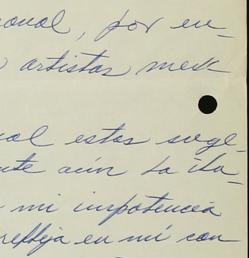 ional, por en-
artistas mex
al estas suge-
nte aún la ila-
mi impotencia
refleja en mí con